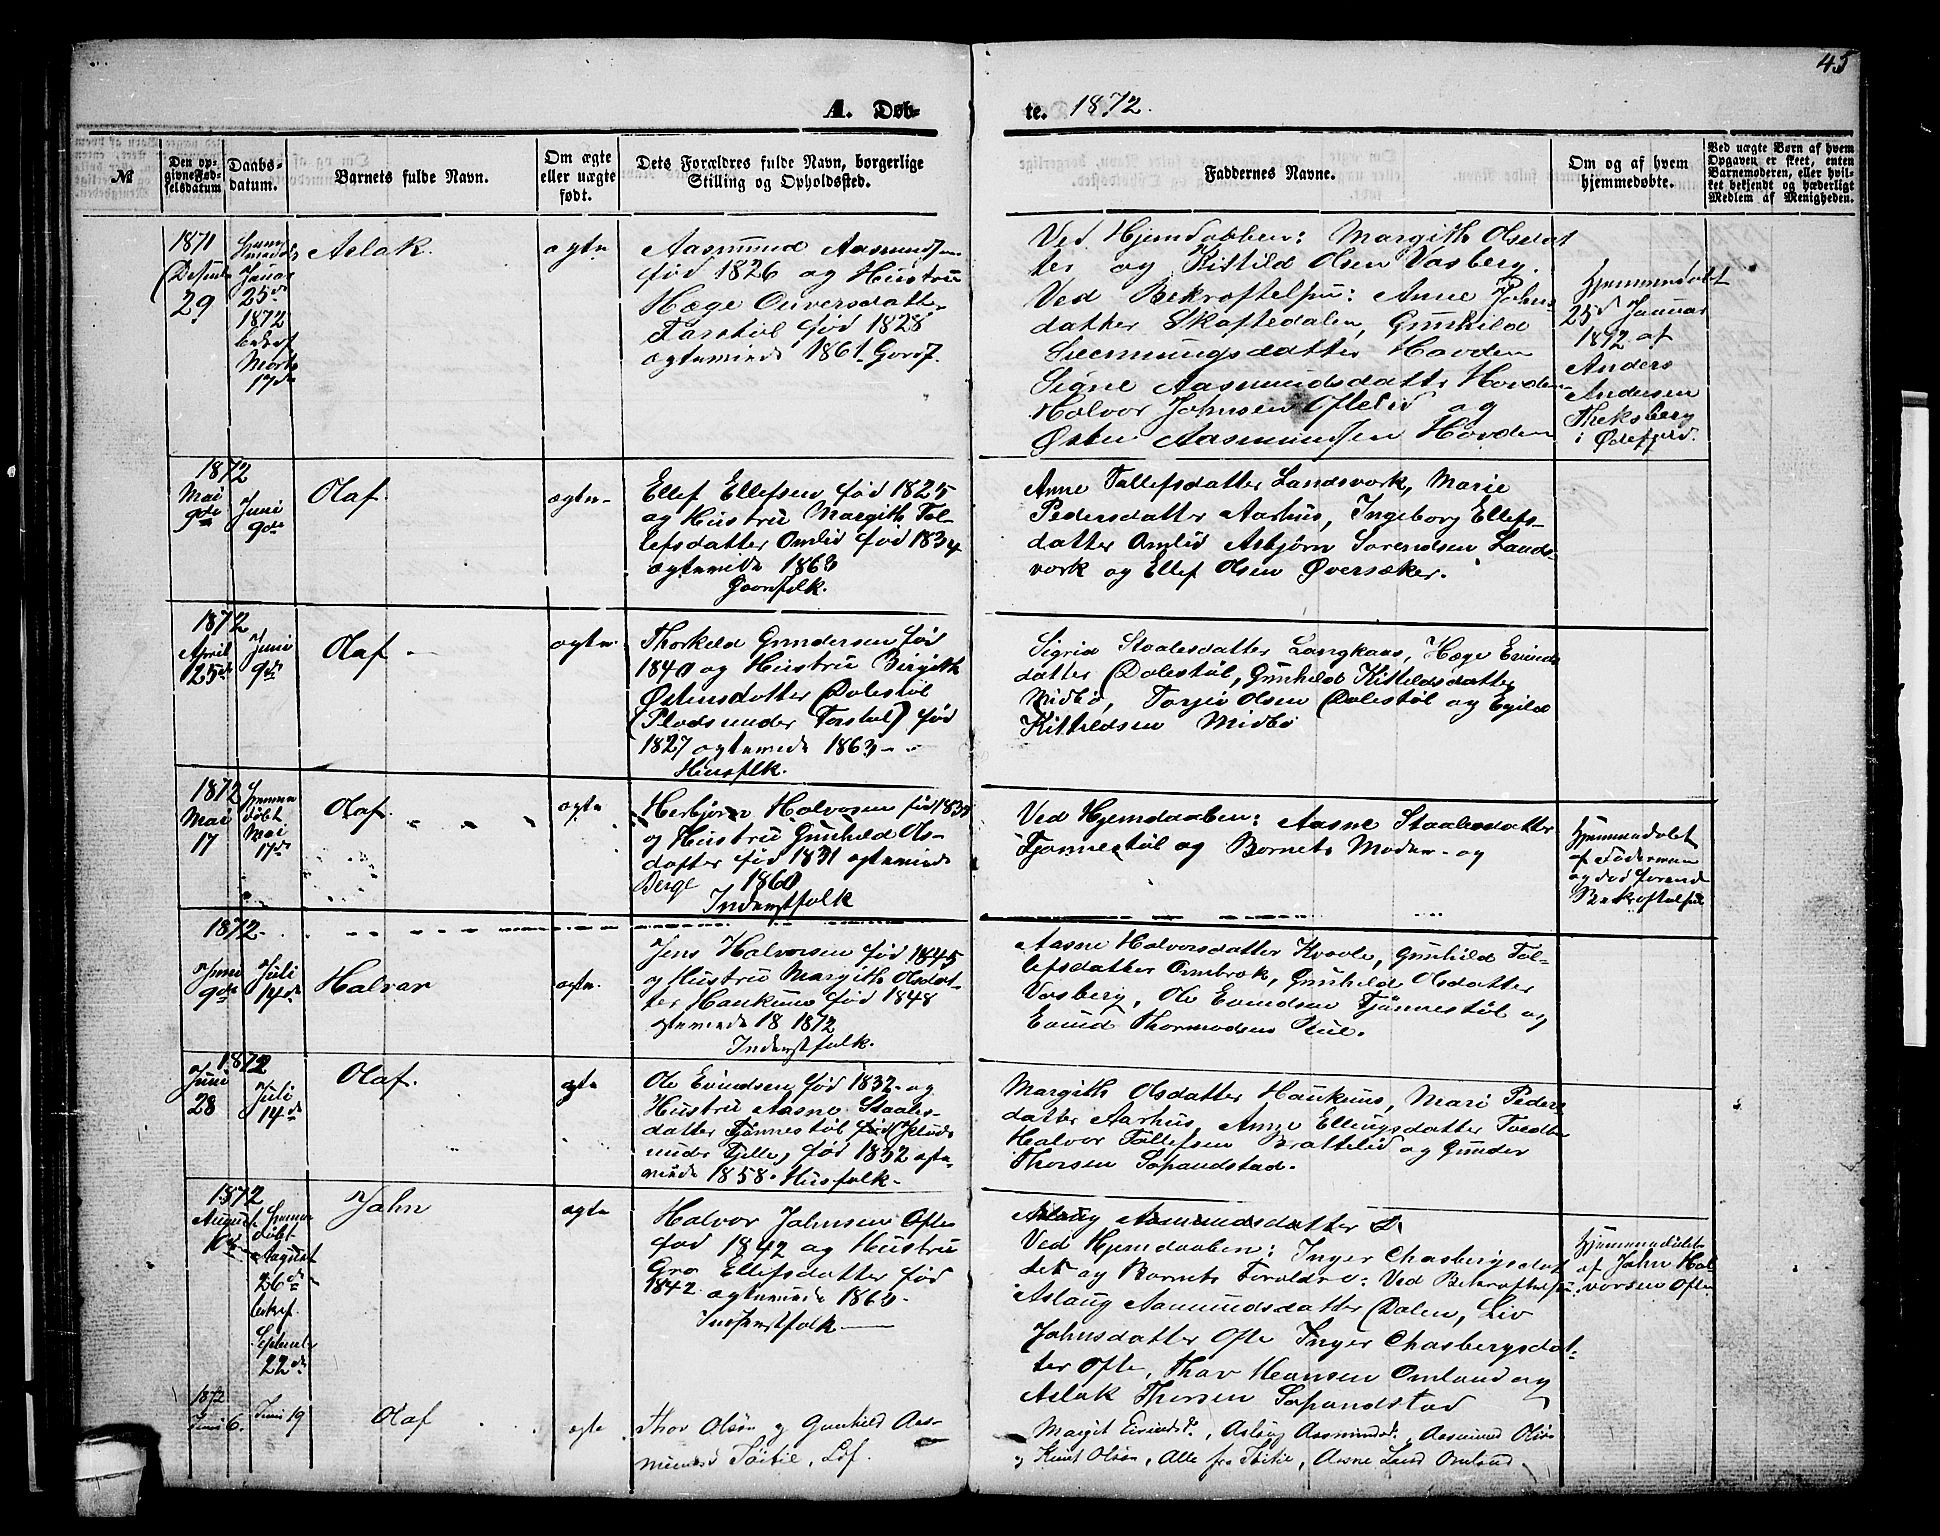 45
A. Døb-
te. 1872.
№
Den op-
givne Fød-
selsdatum
Daabs-
datum.
Barnets fulde Navn.
Om ægte
eller uægte
født.
Dets Forældres fulde Navn, borgerlige
Stilling og Opholdssted.
Faddernes Navne.
Om og af hvem
hjemmedøbte.
Ved uægte Børn af hvem
Opgaven er skeet, enten
Barnemoderen, eller hvil-
ket bekjendt og hæderligt
Medlem af Menigheden.
1871
29
Januar
25de
1872
bekræf
Marts
17de
Aslak.
ægte
Aasmund Aasmundsen
fød 1826 og Hustru
Hæge Ouversdatter
Torstøl fød 1828
ægteviede 1861. Gaardf.
Ved Hjemdaaben: Margith Olsdat
ter og Kittild Olsen Vasberg.
Ved Bekræftelsen: Anne Johns
datter Skaftedalen, Gunhild
datter Hovden
Signe Aasmundsdatter Hovden
Halvor Johnsen Oftelid og
Østen Aasmundsen Hovden
Hjemmedøbt
25d Januar
1872 af
Anders
Andersen
Theksberg
i
1872
Mai
9de
Juni
9de
Olaf.
ægte
Ellef Ellefsen fød 1825
og Hustru Margith Tol-
lefsdatter Omlid fød 1834
ægteviede 1863
Gaardfolk.
Anne Tollefsdatter Landsverk, Marie
Pedersdatter Aarhus, Ingeborg Ellefs-
datter Omlid Asbjørn Sorendsen Lands-
verk og Ellef Olsen Øversaker.
1872
April
25de
Juni
9de
Olaf
ægte
Thorkild Gundersen fød
1840 og Hustru Birgith
Østensdatter Dalestøl
(Plads under Torstøl) fød
1827 ægteviede 1863
Husflk.
Sigrid Staalesdatter Langkaas, Hæge Evinds
datter Dalestøl, Gunhild Kittildsdatter
Midbø, Torjer Olsen Dalestøl og Egild
Kittildsen Midbø
1872
Mai
17
Hjemme
døbt
Mai
17de
Olaf.
ægte
Herbjørn Halvorsen fød 1833
og Hustru Gunhild Ols-
datter fød 1831 ægteviede
Berge 1860
Inderstfolk
Ved Hjemdaaben: Aasne Staalesdatter
Tjønnestøl og Barnets Moder og
Hjemmedøbt
af Faderen
og død forend
Bekræftelsen
1872
Juni
9de
Juli
14de
Halvor
ægte
Jens Halvorsen fød 1845
og Hustru Margith Olsdat
ter Haukuns fød 1848
ægteviede 18 1872
Inderstfolk.
Aasne Halvorsdatter Kvaale, Gunhild Tol-
lefsdatter Ombrok, Gunhild Olsdatter
Vasberg, Ole Evindsen Tjønnestøl og
Evind Thormodsen Rue.
1872
Juni
28
Juli
14de
Olaf.
ægte
Ole Evindsen fød 1832 og
Hustru Aasne Staales-
datter Tjønnestøl Plads
under Fjelle, fød 1832 ægte-
viede 1858. Husfolk
Margith Olsdatter Haukuns, Mari Peders
datter Aarhus, Anne Ellingsdatter Tvedten
Halvor Tollefsen Brattelid og Gunder
Thorsen Sopandstad.
1872
August
Hjemme
døbt
August
26de
bekræf.
September
22de
Jahn
ægte
Halvor Johnsen Ofte
fød 1842 og Hustru
Gro Ellefsdatter fød
1842 ægteviede 1863
Inderstfolk
Aslaug Aasmundsdatter D
Ved Hjemdaaben: Inger Chasbergsdat
ter og Barnets Foreldre: Ved Bekræftelsen
Aslaug Aasmundsdatter Dalen, Liv
Johnsdatter Ofte Inger Chasbergsdat-
ter Ofte, Thov Hansen Omlund og
Aslak Thorsen Sopandstad
Hjemmedøbt
af John Hal
vorsen Ofte
1872
Juni 6.
Juni 19
Olaf
ægte
Thor Olsøn og Gunhild Aas-
mundsd Töitie, Lóf.
Margit Eivindsd., Aslaug Aasmundsd., Aasmund Olsøn
og Knut Olsøn, Alle fra Töitie, Aasne Lund Omlund.